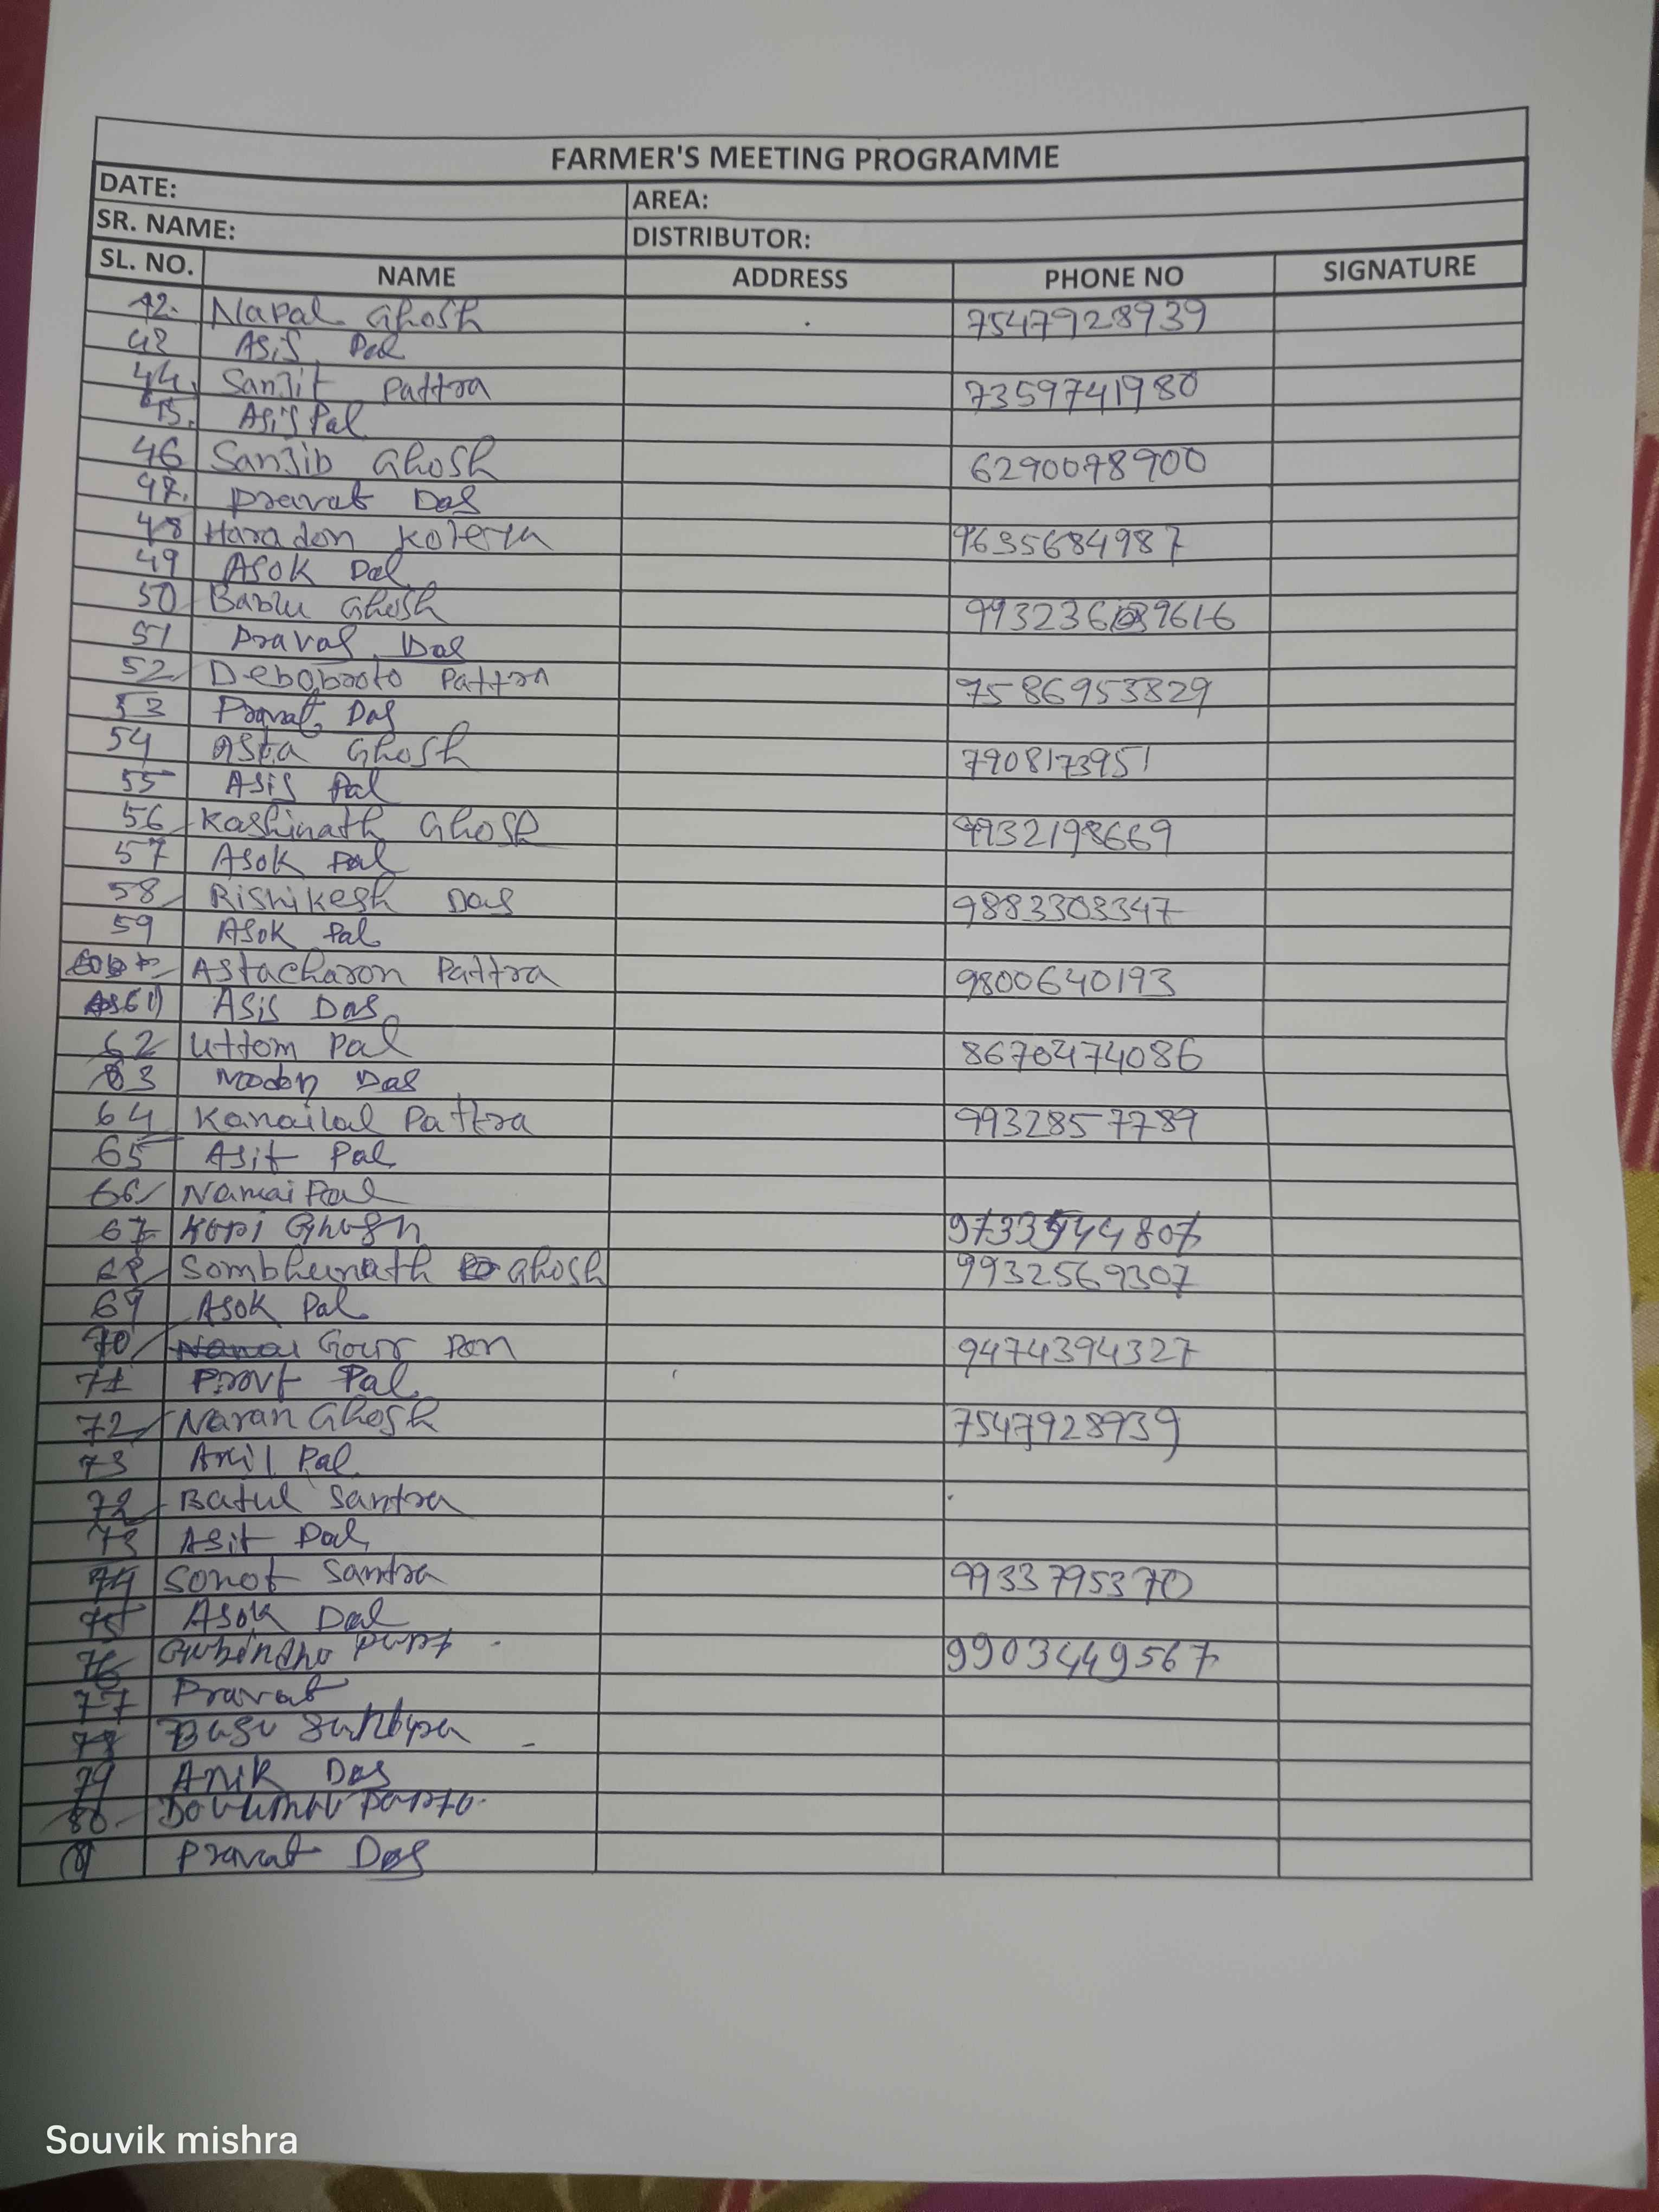 FARMER'S MEETING PROGRAMME
DATE: AREA:
SR. NAME: DISTRIBUTOR:
SL. NO. NAME ADDRESS PHONE NO SIGNATURE
42. Napal Ghosh 7547928939
43 Asis Pal
44. Sanjit Pattra 7359741980
45. Asis Pal
46 Sanjib Ghosh 6290078900
47. Pravat Das
48 Haradon 9635684987
49 Asok Pal
50 Bablu Ghosh
51 Pravat Das
52 Debobroto Pattra 7586953829
53 Pravat Das
54 Asta Ghosh 7908173951
55 Asis Pal
56 Kashinath Ghosh 9932198669
57 Asok Pal
58 Rishikesh Das 9883303347
59 Asok Pal
60 Astacharon Pattra 9800640193
61 Asis Das
62 Uttom Pal 8670474086
63 Modon Das
64 Kanailal Pattra 9932857789
65 Asit Pal
66 Namai Pal
67 Kopi Ghosh
68 Sombhunath Ghosh 9932569307
69 Asok Pal
70 Gour Pan 9474394327
71 Pal
72 Naran Ghosh 7547928939
73 Anil Pal
72 Batul Santra
73 Asit Pal
74 Sonot Santra 9933795370
75 Asok Pal
76 9903449567
77 Pravat
78
79 Das
80
81 Pravat Das
Souvik mishra